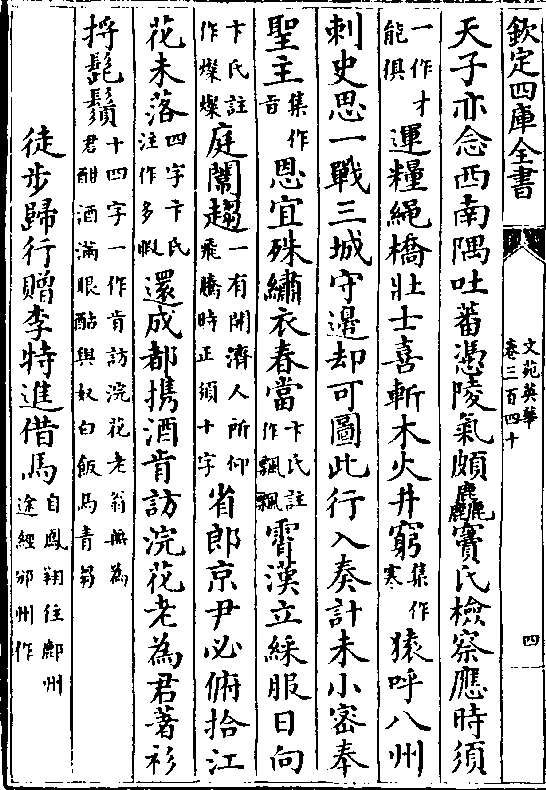 欽定四庫全書 文苑英華卷三百四十 四
天子亦念西南隅吐蕃憑陵氣頗麤竇氏檢察應時須
一作才能俱運糧繩橋壯士喜斬木火井窮集作寒猿呼八州
刺史思一戰三城守邊却可圖此行入奏計未小密奉
聖主集作音恩宜殊繡衣春當卞氏註作飄飄霄漢立綵服日向
卞氏註作燦燦庭闈趨一有開濟人所仰飛騰時正須十字省郎京尹必俯拾江
花未落四字卞氏注作多暇還成都携酒肯訪浣花老為君著衫
捋髭鬚十四字一作肯訪浣花老翁無為君酣酒滿眼酤與奴白飯馬青芻
徒步歸行贈李特進借馬自鳳翔往鄜州途經邠州作